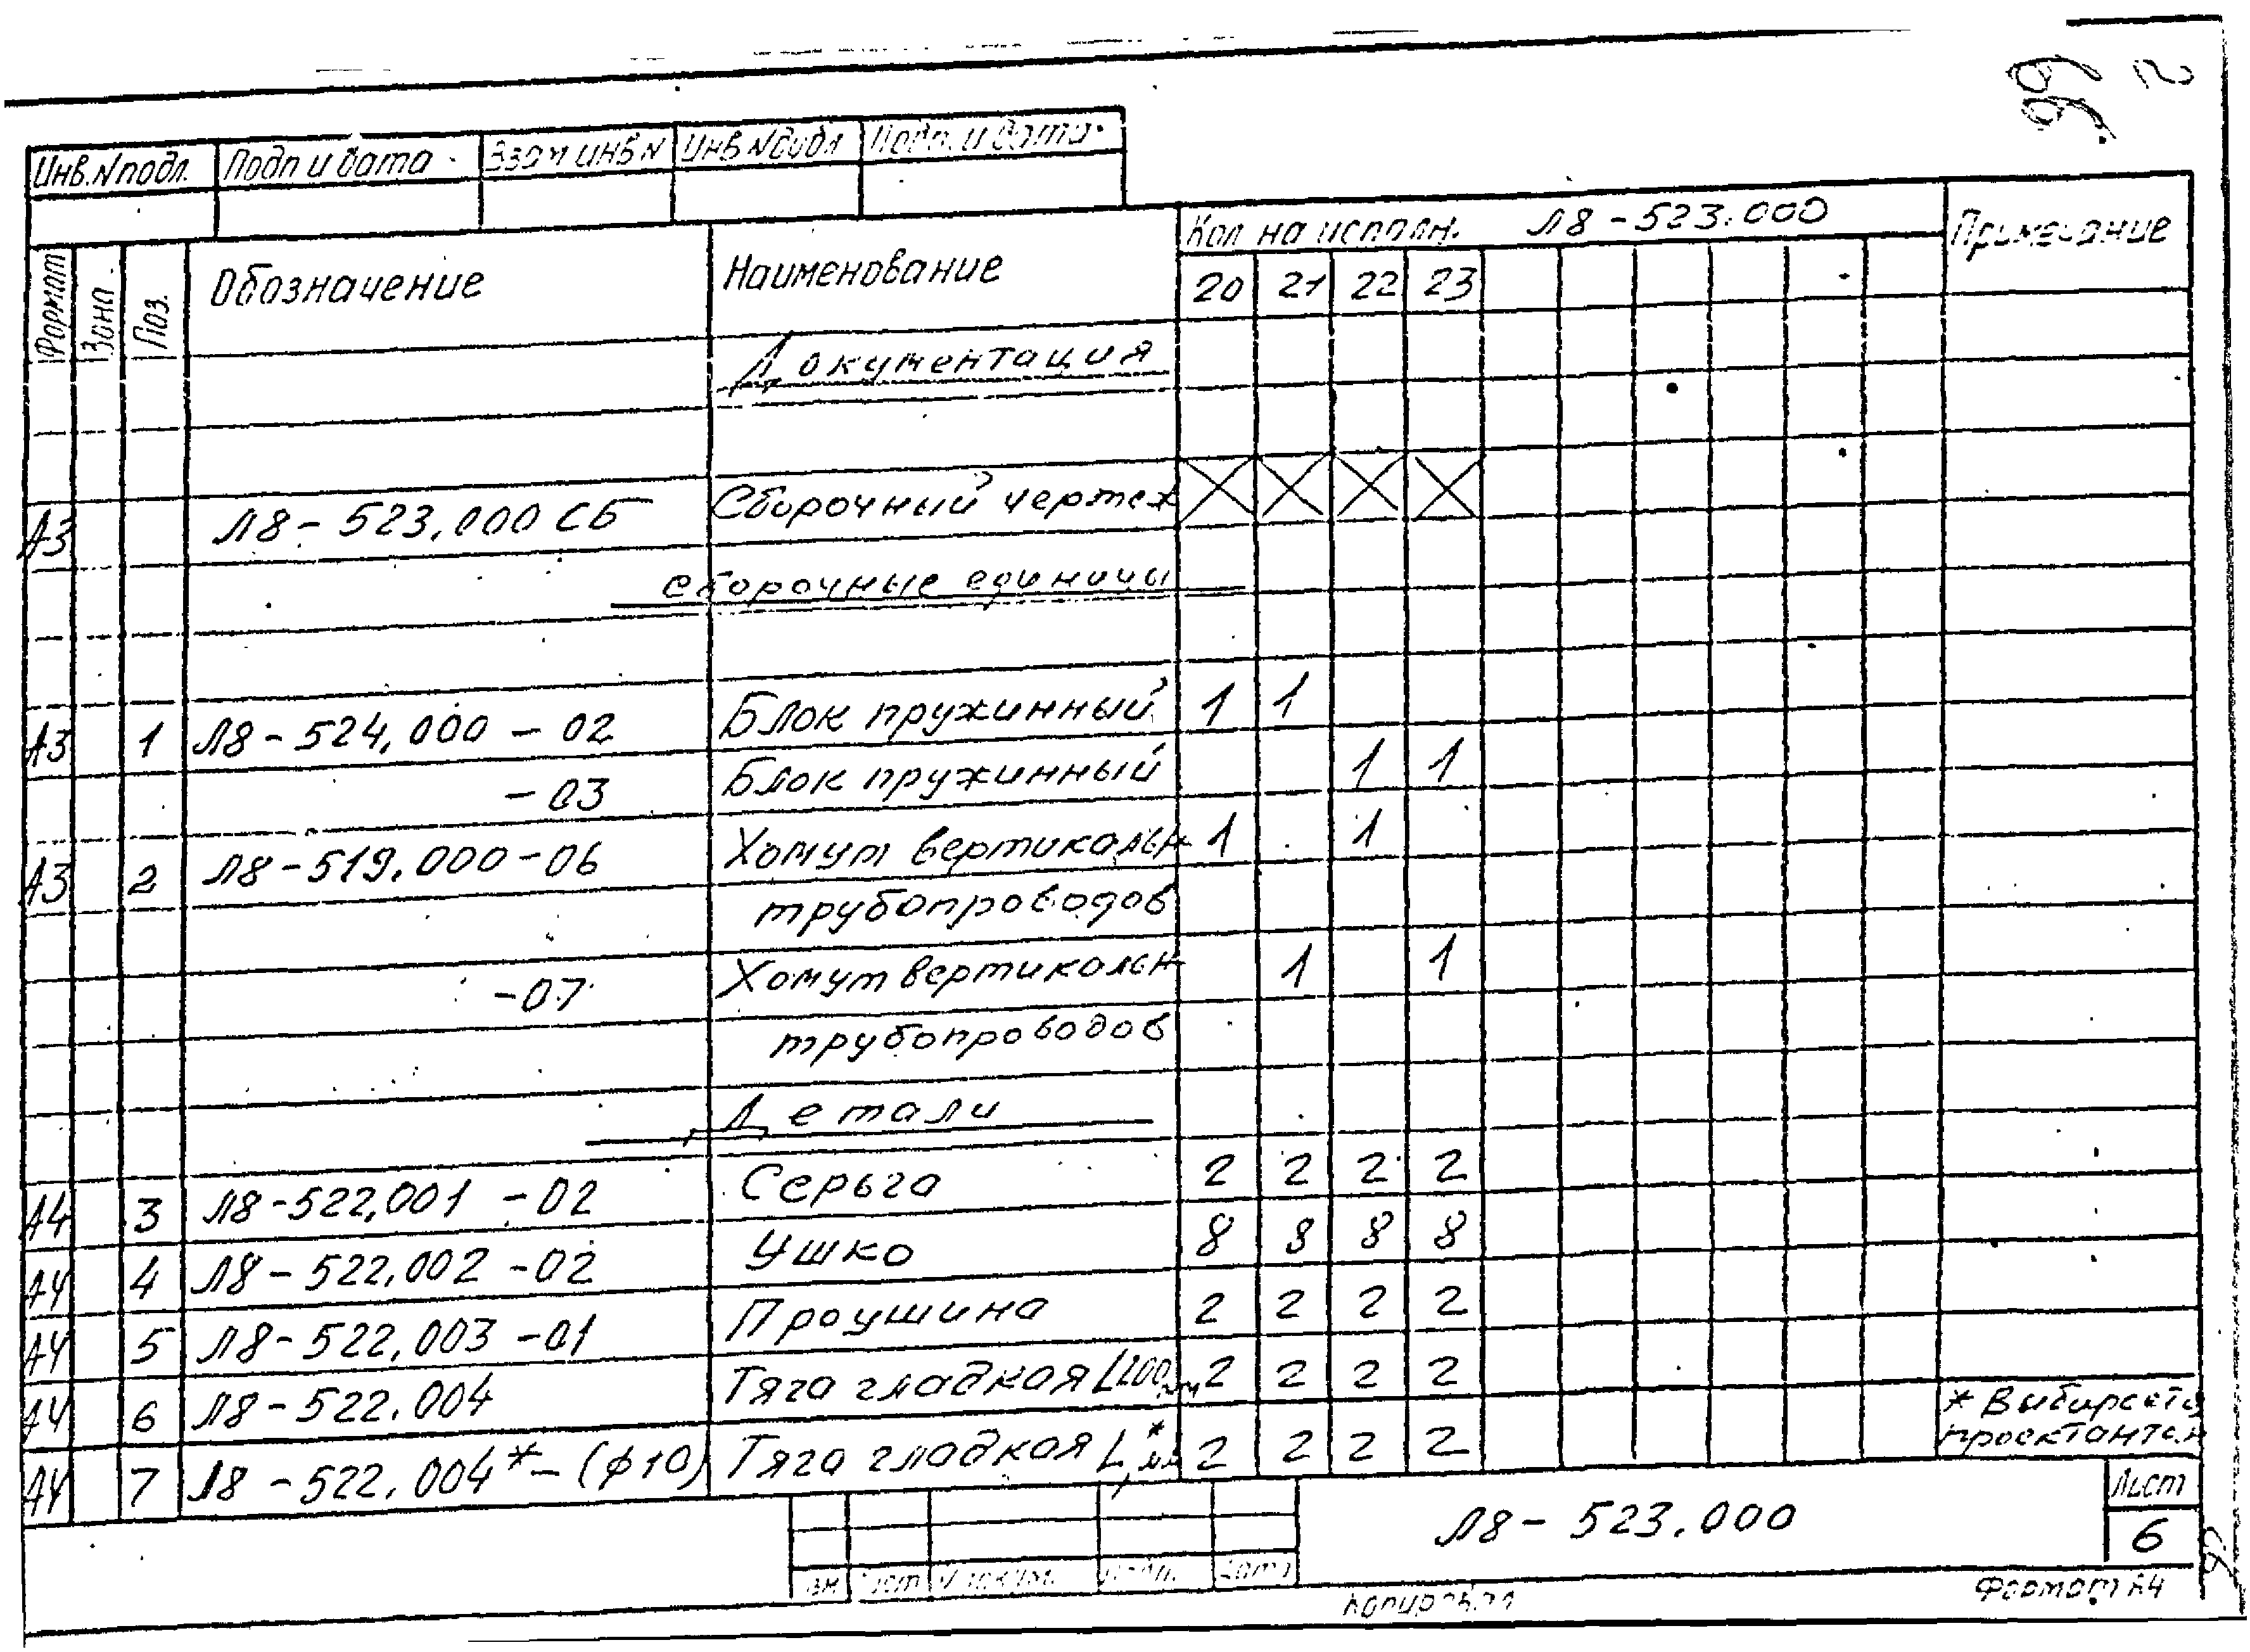 99
Инв.Nподл. Подп и дата Взам инв N Инв Nдубл Подп. и дата
Формат Зона Поз. Обозначение Наименование Кол на исполн. Л8-523.000 Примечание
20 21 22 23
Документация
А3 Л8-523.000 СБ Сборочный чертеж
Сборочные единицы
А3 1 Л8-524.000-02 Блок пружинный 1 1
-03 Блок пружинный 1 1
А3 2 Л8-519.000-06 Хомут вертикальн 1 1
трубопроводов
-07 Хомут вертикальн 1 1
трубопроводов
Детали
А4 3 Л8-522.001-02 Серьга 2 2 2 2
А4 4 Л8-522.002-02 Ушко 8 8 8 8
А4 5 Л8-522.003-01 Проушина 2 2 2 2
А4 6 Л8-522.004 Тяга гладкая L200мм 2 2 2 2
А4 7 Л8-522.004*-(ф10) Тяга гладкая L*,мм 2 2 2 2 * Выбирается
проектантом
Л8-523.000 Лист
6
Изм Лист N докум. Подп. Дата
Копировал Формат А4